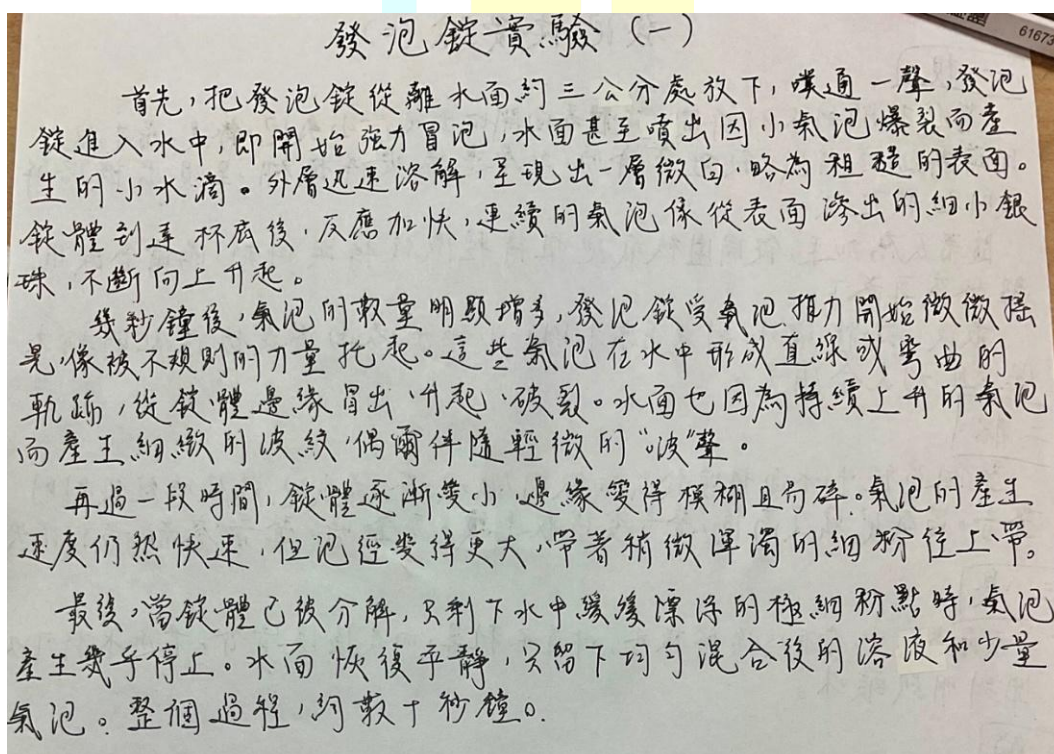 61673
發泡錠實驗（一）
首先，把發泡錠從離水面約三公分處放下，噗通一聲，發泡
錠進入水中，即開始強力冒泡，水面甚至噴出因小氣泡爆裂而產
生的小水滴。外層迅速溶解，呈現出一層微白，略為粗糙的表面。
錠體到達杯底後，反應加快，連續的氣泡像從表面滲出的細小銀
珠，不斷向上升起。
幾秒鐘後，氣泡的數量明顯增多，發泡錠受氣泡推力開始微微搖
晃，像被不規則的力量托起。這些氣泡在水中形成直線或彎曲的
軌跡，從錠體邊緣冒出、升起、破裂。水面也因為持續上升的氣泡
而產生細緻的波紋，偶爾伴隨輕微的“啵”聲。
再過一段時間，錠體逐漸變小，邊緣變得模糊且易碎。氣泡的產生
速度仍然快速，但泡徑變得更大，帶著稍微渾濁的細粉往上帶。
最後，當錠體已被分解，只剩下水中緩緩漂浮的極細粉點時，氣泡
產生幾乎停止。水面恢復平靜，只留下均勻混合後的溶液和少量
氣泡。整個過程，約數十秒鐘。